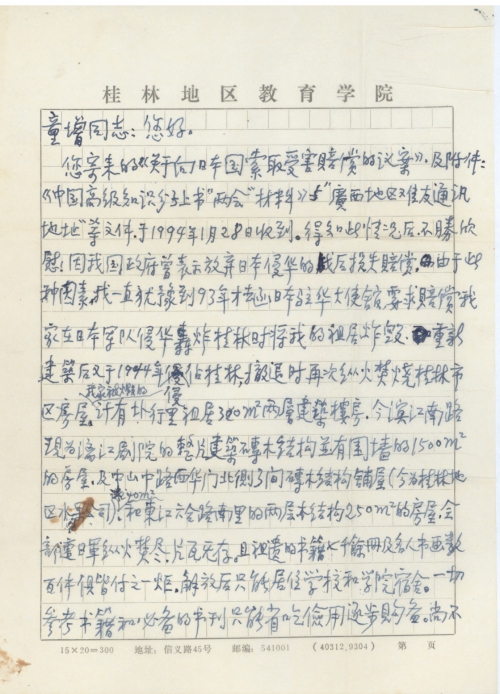 桂林地区教育学院
童增同志：您好。
您寄来的《关于向日本国索取受害赔偿的议案》，及附件：
《中国高级知识分子上书"两会"材料》与"廣西地区难友通讯
地址"等文件于1994年1月28日收到。得知此情况后不勝欣
慰！因我国政府曾表示放弃日本侵华的战后损失赔偿，由于此
种因素，我一直犹豫到93年才去函日本驻华大使馆要求赔偿。我
家在日本军队侵华轟炸桂林时将我的祖居炸毁，重新
建築后又于1944年侵佔桂林，撤退时再次纵火焚烧桂林市
我家被燬的
区房屋。计有 行里祖屋300m²两層建築樓房，今滨江南路
现为漓江剧院的整片建築磚木结构並有围墙的1500m²
的房屋，及中山中路西华门北侧3间磚木结构铺屋（今为桂林地
40m²
区 公司），和東江六合路南里的两层木结构250m²的房屋，全
部遭日軍纵火焚尽，片瓦无存。且祖遗的书籍七千馀冊及名人书画数
百件俱皆付之一炬。解放后只能居住学校和学院宿舍。一切
参考书籍和必备的书刊只能省吃儉用逐步购备。尚不
15×20=300 地址：信义路45号 邮编：541001 (40312,9304) 第 页